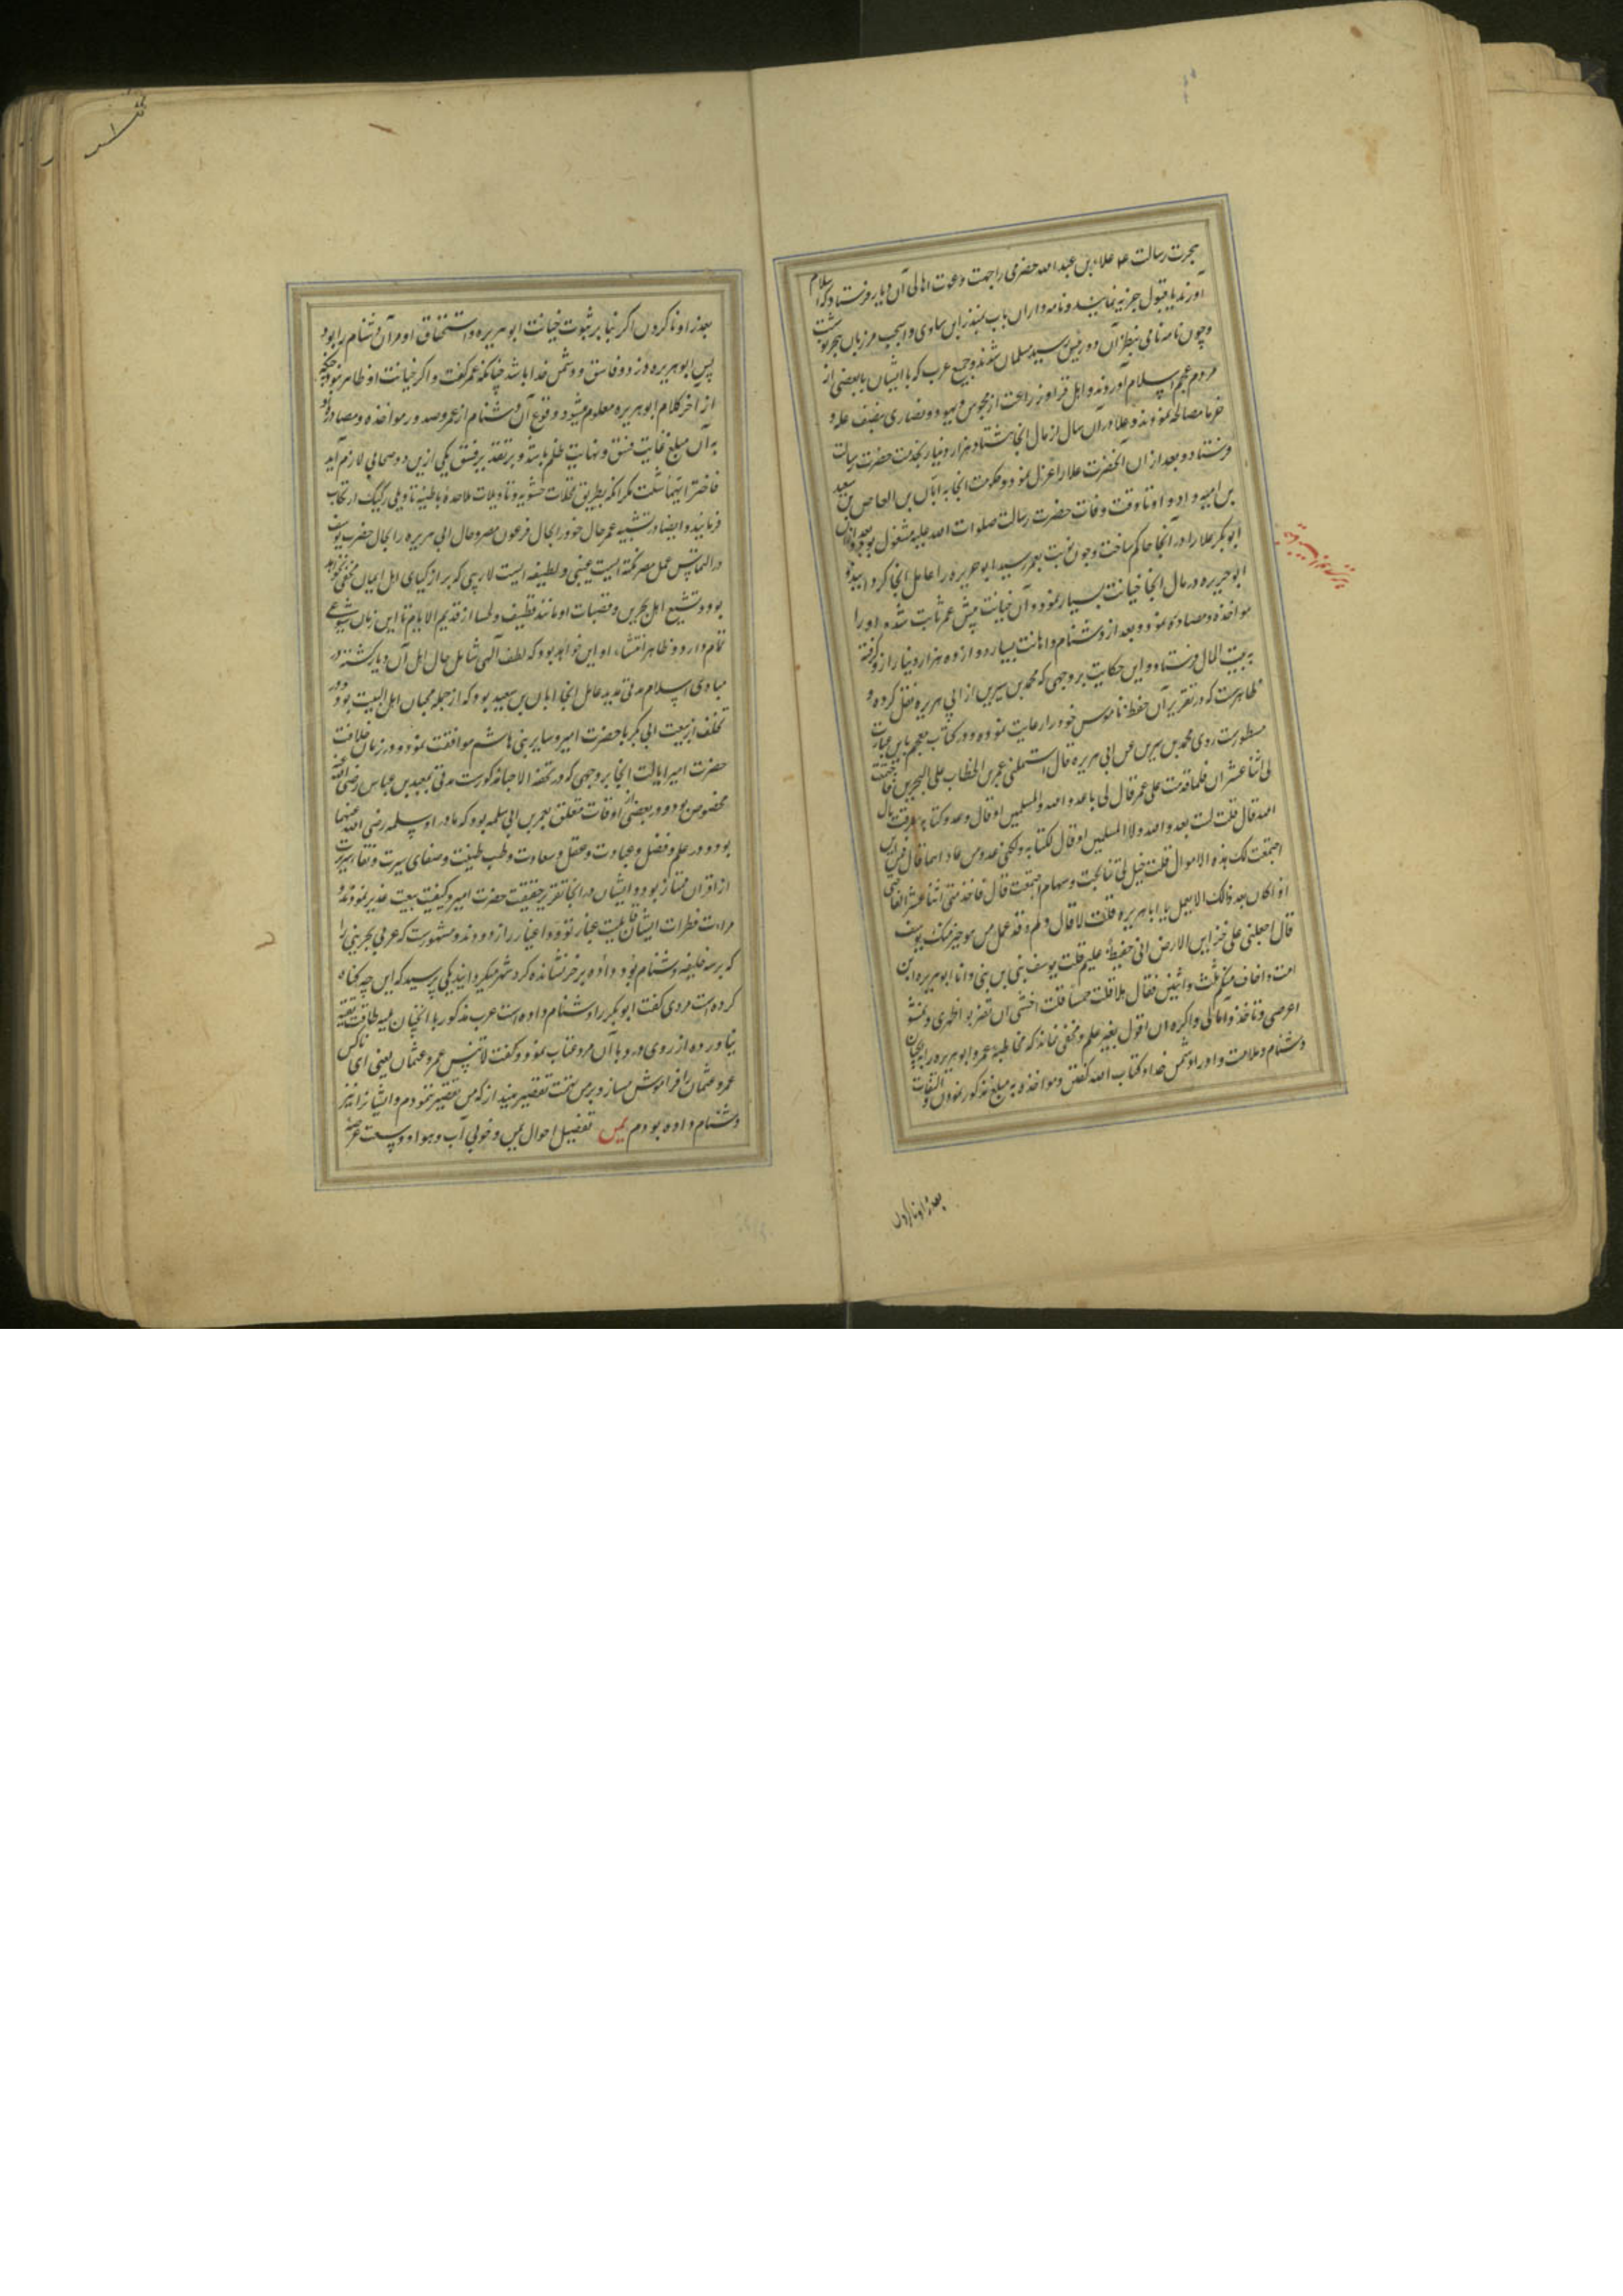 هجرت رسالت علاء بن عبد الله حضرمی را جهت دعوت اهالی آن دیار فرستاد که اسلام
آورند یا قبول جزیه نمایند و نامه در آن باب بمنذر بن ساوی و اسیجت مرزبان هجر نوشت
و چون نامه نامی بنظر آن دو رفیق رسید مسلمان شدند و جمیع عرب که با ایشان با بعضی از
مردم عجم اسلام آوردند و اهل قرا و زراعت از مجوس و یهود و نصاری بنصف غله و
خرما مصالحه نمودند و علا در آن سال از مال انجا هشتاد هزار دینار بخدمت حضرت رسالت
فرستاد و بعد از ان آنحضرت علا را عزل نمود و حکومت انجا به ابان بن العاص بن سعید
بن امیه داد و او تا وقت وفات حضرت رسالت صلوات الله علیه مشغول بود بعد از آن
ابو بکر علا را در آنجا حاکم ساخت و چون نوبت بعمر رسید ابو هریره را عامل انجا گردانید و
ابو هریره در مال انجا خیانت بسیار نمود و آن خیانت پیش عمر ثابت شده او را
مواخذه و مصادره نمود و بعد از دشنام و اهانت بسیار دوازده هزار دینار از و گرفته
به بیت المال فرستاد و این حکایت بر وجهی که محمد بن سیرین از ابی هریره نقل کرده و
ظاهرست که در تقریر آن حفظ ناموس خود را رعایت نموده و در کتاب معجم باین عبارت
مسطورست روی محمد بن سیرین عن ابی هریره قال استعملنی عمر بن الخطاب علی البحرین فاجتمعت
لی اثنا عشر الف فلما قدمت علی عمر قال لی یا عدو الله و المسلمین او قال و عدو کتابه سرقت مال
الله قال قلت لست بعدو الله و لا المسلمین او قال لکتابه و لکنی عدو من عاداهما قال فمن این
اجتمعت لک هذه الاموال قلت خیل لی تناتجت و سهام اجتمعت قال فاخذ منی اثنا عشر الفا
اذا کان بعد ذالک الا یعمل یا ابا هریره قلت لا قال و لم و قد عمل من هو خیر منک یوسف
قال اجعلنی علی خزاین الارض انی حفیظ علیم قلت یوسف نبی بن نبی و انا ابو هریره ابن
امته و اخاف منکم ثلث و اثنین فقال هلا قلت خمسا قلت اخشی ان تضربوا ظهری و تشتموا
عرضی و تاخذوا مالی و اکره ان اقول بغیر علم و مخفی نماند که مخاطبه عمر و ابو هریره را بخیانت
و دشنام و ملامت و او را دشمن خدا و کتاب الله گفتن و مواخذه به مبلغ مذکور نمودن و التفات
بعذر او ناکردن
بعذر او ناکردن اگر بنا بر ثبوت خیانت ابو هریره و استحقاق او مر آن دشنام را بود
پس ابو هریره دزد و فاسق و دشمن خدا باشد چنانکه عمر گفت و اگر خیانت او ظاهر نبود چنانکه
از آخر کلام ابو هریره معلوم میشود وقوع آن دشنام از عمر و صدور مواخذه و مصادره او
به آن مبلغ غایت فسق و نهایت ظلم باشد و بر تقدیر فسق یکی ازین دو صحابی لازم آید
فاختر ایهما شئت مگر انکه بطریق تمحلات حشویه و تاویلات ملاحده باطنیه تاویلی رکیک ارتکاب
فرمایند و ایضا در تشبیه عمر حال خود را بحال فرعون مصر و حال ابی هریره را بحال حضرت یوسف
در التماس عمل مصر نکته ایست غیبی و لطیفه ایست لاریبی که بر ازکیای اهل ایمان مخفی نخواهد
بود و تشیع اهل بحرین و قصبات او مانند قطیف و لحسا از قدیم الایام تا این زمان شیوعی
تمام دارد و ظاهرا منشاء او این خواهد بود که لطف الهی شامل حال اهل آن دیار گشته در
مبادی اسلام مدتی مدید عامل انجا ابان بن سعید بود که از جمله محبان اهل البیت بود و در
تخلف از بیعت ابی بکر با حضرت امیر و سایر بنی هاشم موافقت نمود و در زمان خلافت
حضرت امیر ایالت انجا بر وجهی که در تحفة الاحبا مذکورست مدتی بمعبد بن عباس رضی الله عنه
مخصوص بود و در بعضی از اوقات متعلق بعمر بن ابی سلمه بود که مادر او سلمه رضی الله عنها
بود و در علم و فضل و عبادت و عقل و سعادت و طیب طینت و صفای سیرت و نقاء سریرت
از اقران ممتاز بود و ایشان در انجا تقریر حقیقت حضرت امیر و کیفیت بیعت غدیر نمودند و
مراءت فطرات ایشان قابلیت عبار تودد اغیار را زدودند و مشهورست که عربی بحرینی را
که بر سه خلیفه دشنام داده بود بر خر نشانده گرد شهر میگردانیدند یکی پرسید که این چه گناه
کرده است مردی گفت ابو بکر را دشنام داده است عرب مذکور با انچنان بلیه طاقت تقیه
نیاورده از روی درد با آن مرد عتاب نمود و گفت لا تنس عمر و عثمان یعنی ای ناکس
عمر و عثمان را فراموش مساز و بر من تهمت تقصیر مینداز که من تقصیر ننمودم و ایشانرا نیز
دشنام داده بودم یمن تفصیل احوال یمن و خوبی آب و هوا و وسعت عرصه